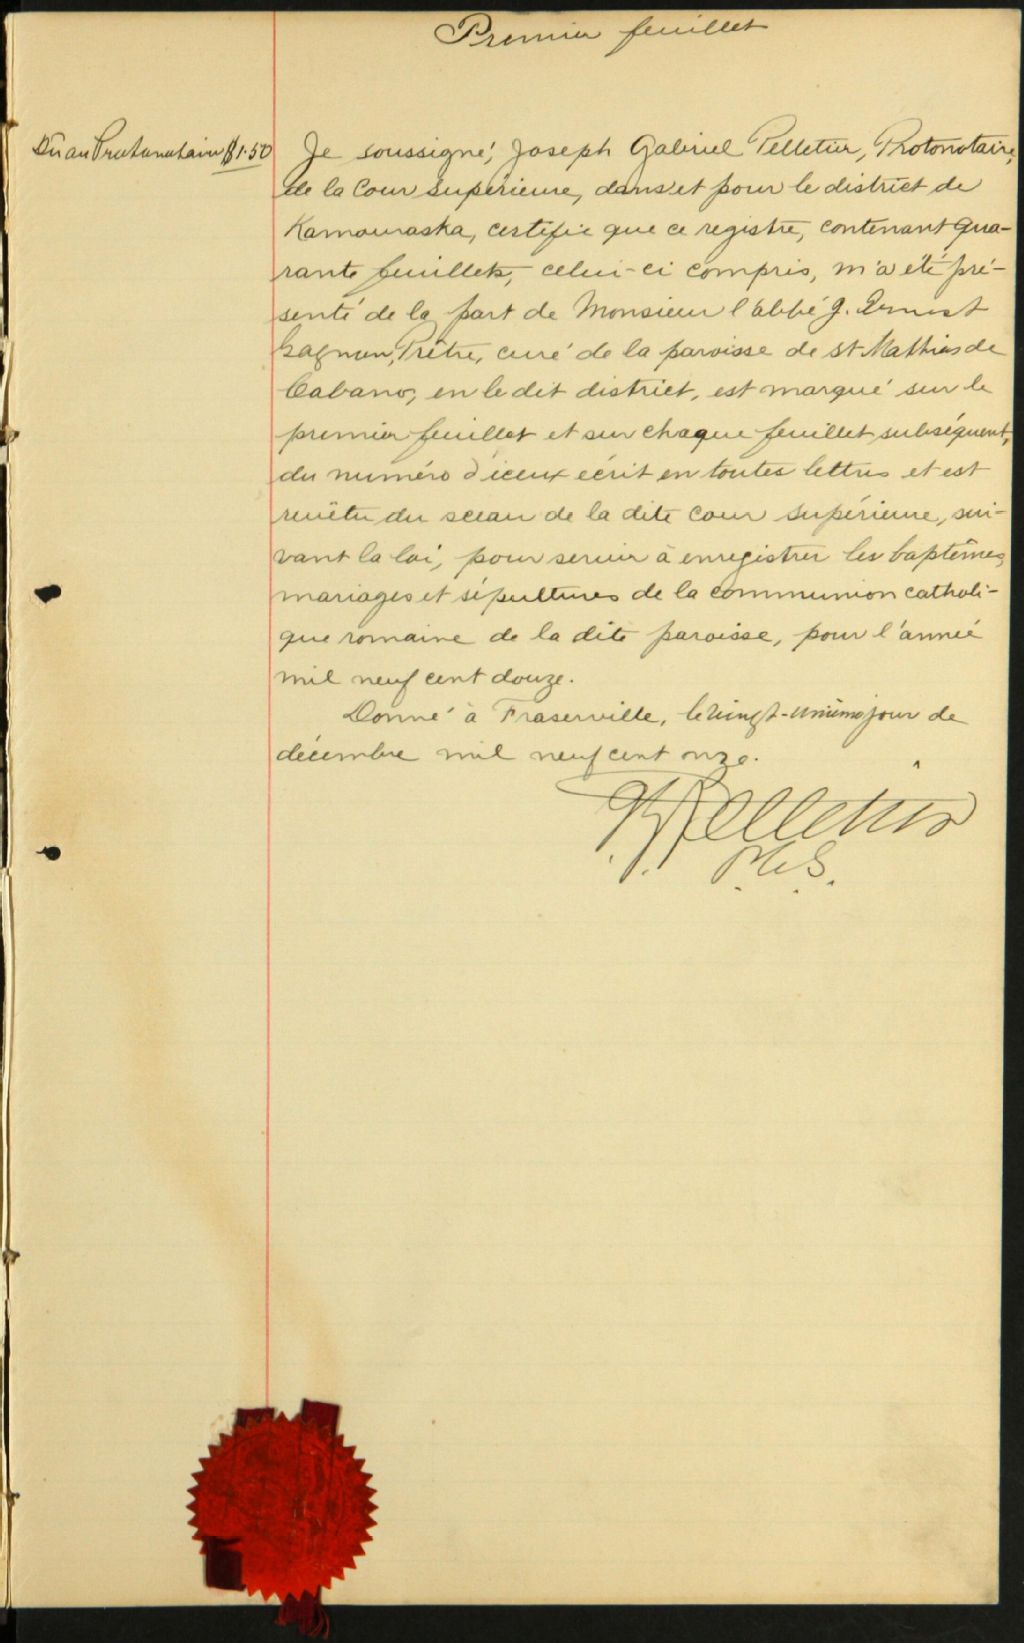 Premier feuillet
Dû au Protonotaire $1.50
Je soussigné, Joseph Gabriel Pelletier, Protonotaire,
de la Cour Supérieure, dans et pour le district de
Kamouraska, certifie que ce registre, contenant qua-
rante feuillets, celui-ci compris, m'a été pré-
senté de la part de Monsieur l'abbé J. Ernest
Gagnon, Prêtre, curé de la paroisse de St Mathias de
Cabano, en le dit district, est marqué sur le
premier feuillet et sur chaque feuillet subséquent,
du numéro d'iceux écrit en toutes lettres et est
revêtu du sceau de la dite cour supérieure, sui-
vant la loi, pour servir à enregistrer les baptêmes,
mariages et sépultures de la communion catholi-
que romaine de la dite paroisse, pour l'année
mil neuf cent douze.
Donné à Fraserville, le vingt-unième jour de
décembre mil neuf cent onze.
Pelletier
P.C.S.